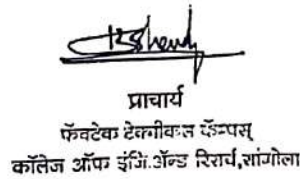 प्राचार्य
फॅबटेक टेक्नीकल कॅम्पस्
कॉलेज ऑफ इंजि.ॲन्ड रिसर्च,सांगोला